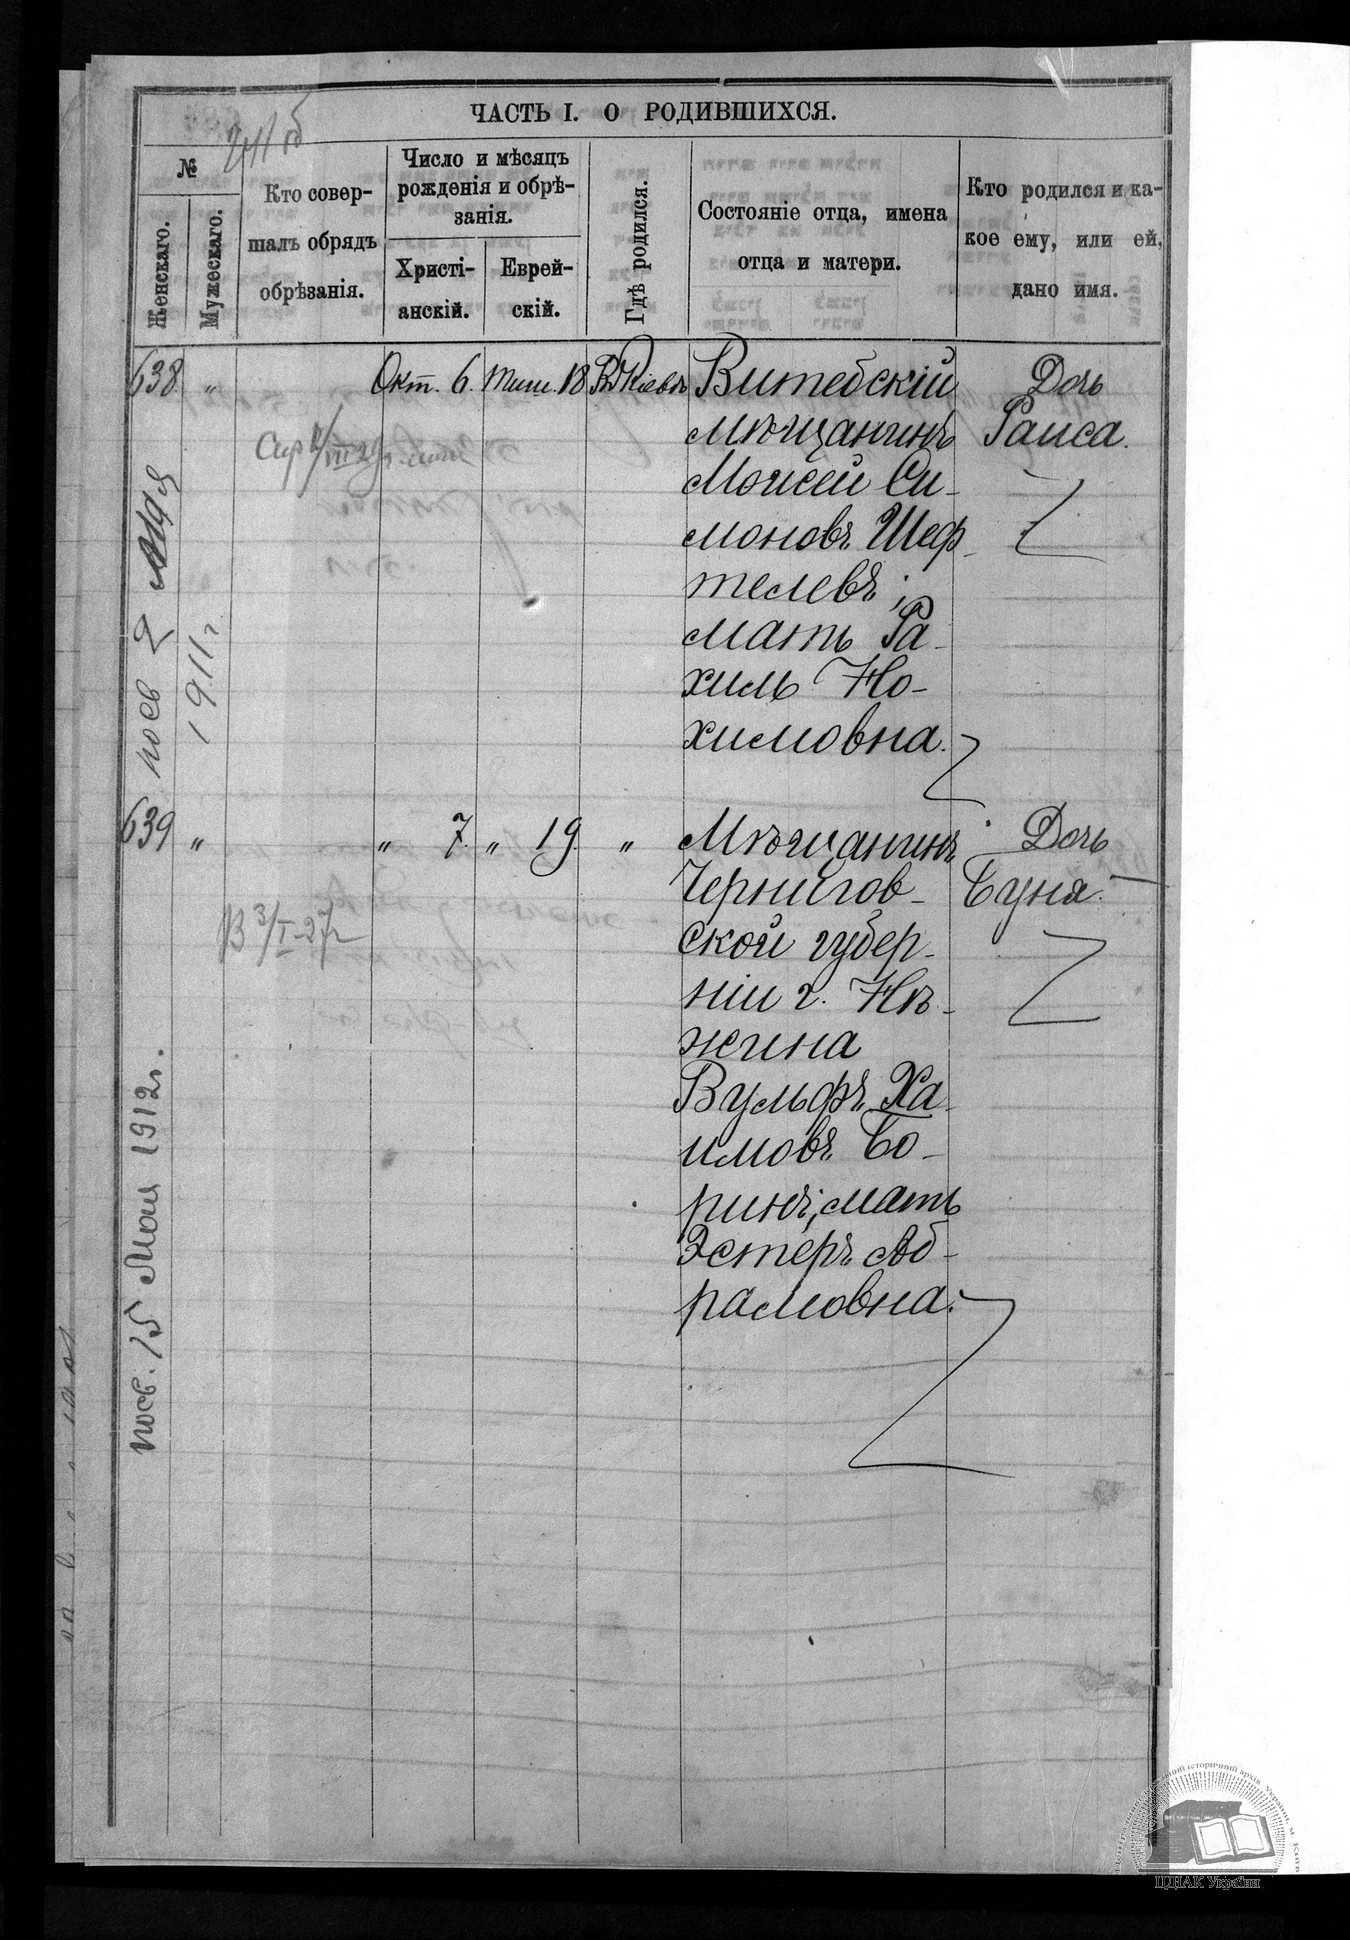 ЧАСТЬ I. О РОДИВШИХСЯ.
№
Женскаго.
Мужескаго.
Кто совер-
шалъ обрядъ
обрѣзанія.
Число и мѣсяцъ
рожденія и обрѣ-
занія.
Христі-
анскій.
Еврей-
скій.
Гдѣ родился.
Состояніе отца, имена
отца и матери.
Кто родился и ка-
кое ему, или ей,
дано имя.
638 " Окт. 6. Тиш. 18 Въ Кіевѣ Витебскій Дочь
мѣщанинъ Раиса.
Моисей Си-
моновъ Шеф-
телевъ;
мать Ра-
хиль Но-
химовна.
1911 г.
639 " " 7. " 19. " Мѣщанинъ Дочь
Чернигов- Буня.
ской губер-
ніи г. Нѣ-
жина
Вульфъ Ха-
имовъ Бо-
ринъ, мать
Эстеръ Аб-
рамовна.
В 3/I-27 г
посв. 15 Мая 1912 г.
ЦДІАК України